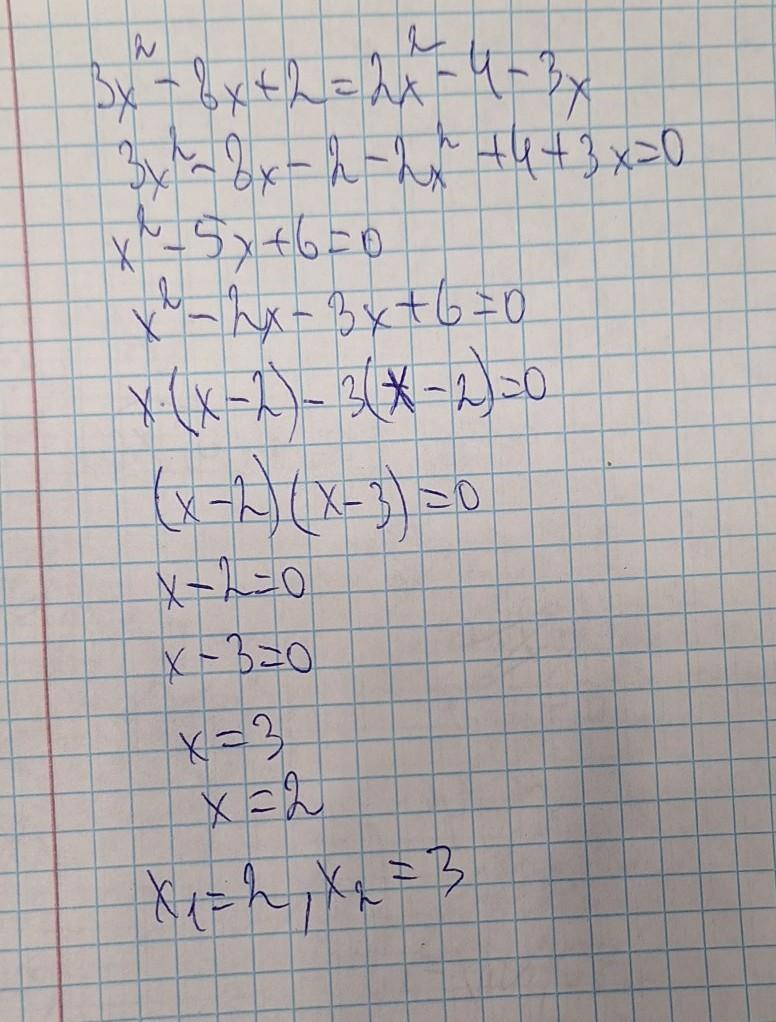 3x² - 8x + 2 = 2x² - 4 - 3x
3x² - 8x - 2 - 2x² + 4 + 3x = 0
x² - 5x + 6 = 0
x² - 2x - 3x + 6 = 0
x·(x - 2) - 3(x - 2) = 0
(x - 2)(x - 3) = 0
x - 2 = 0
x - 3 = 0
x = 3
x = 2
x₁ = 2, x₂ = 3